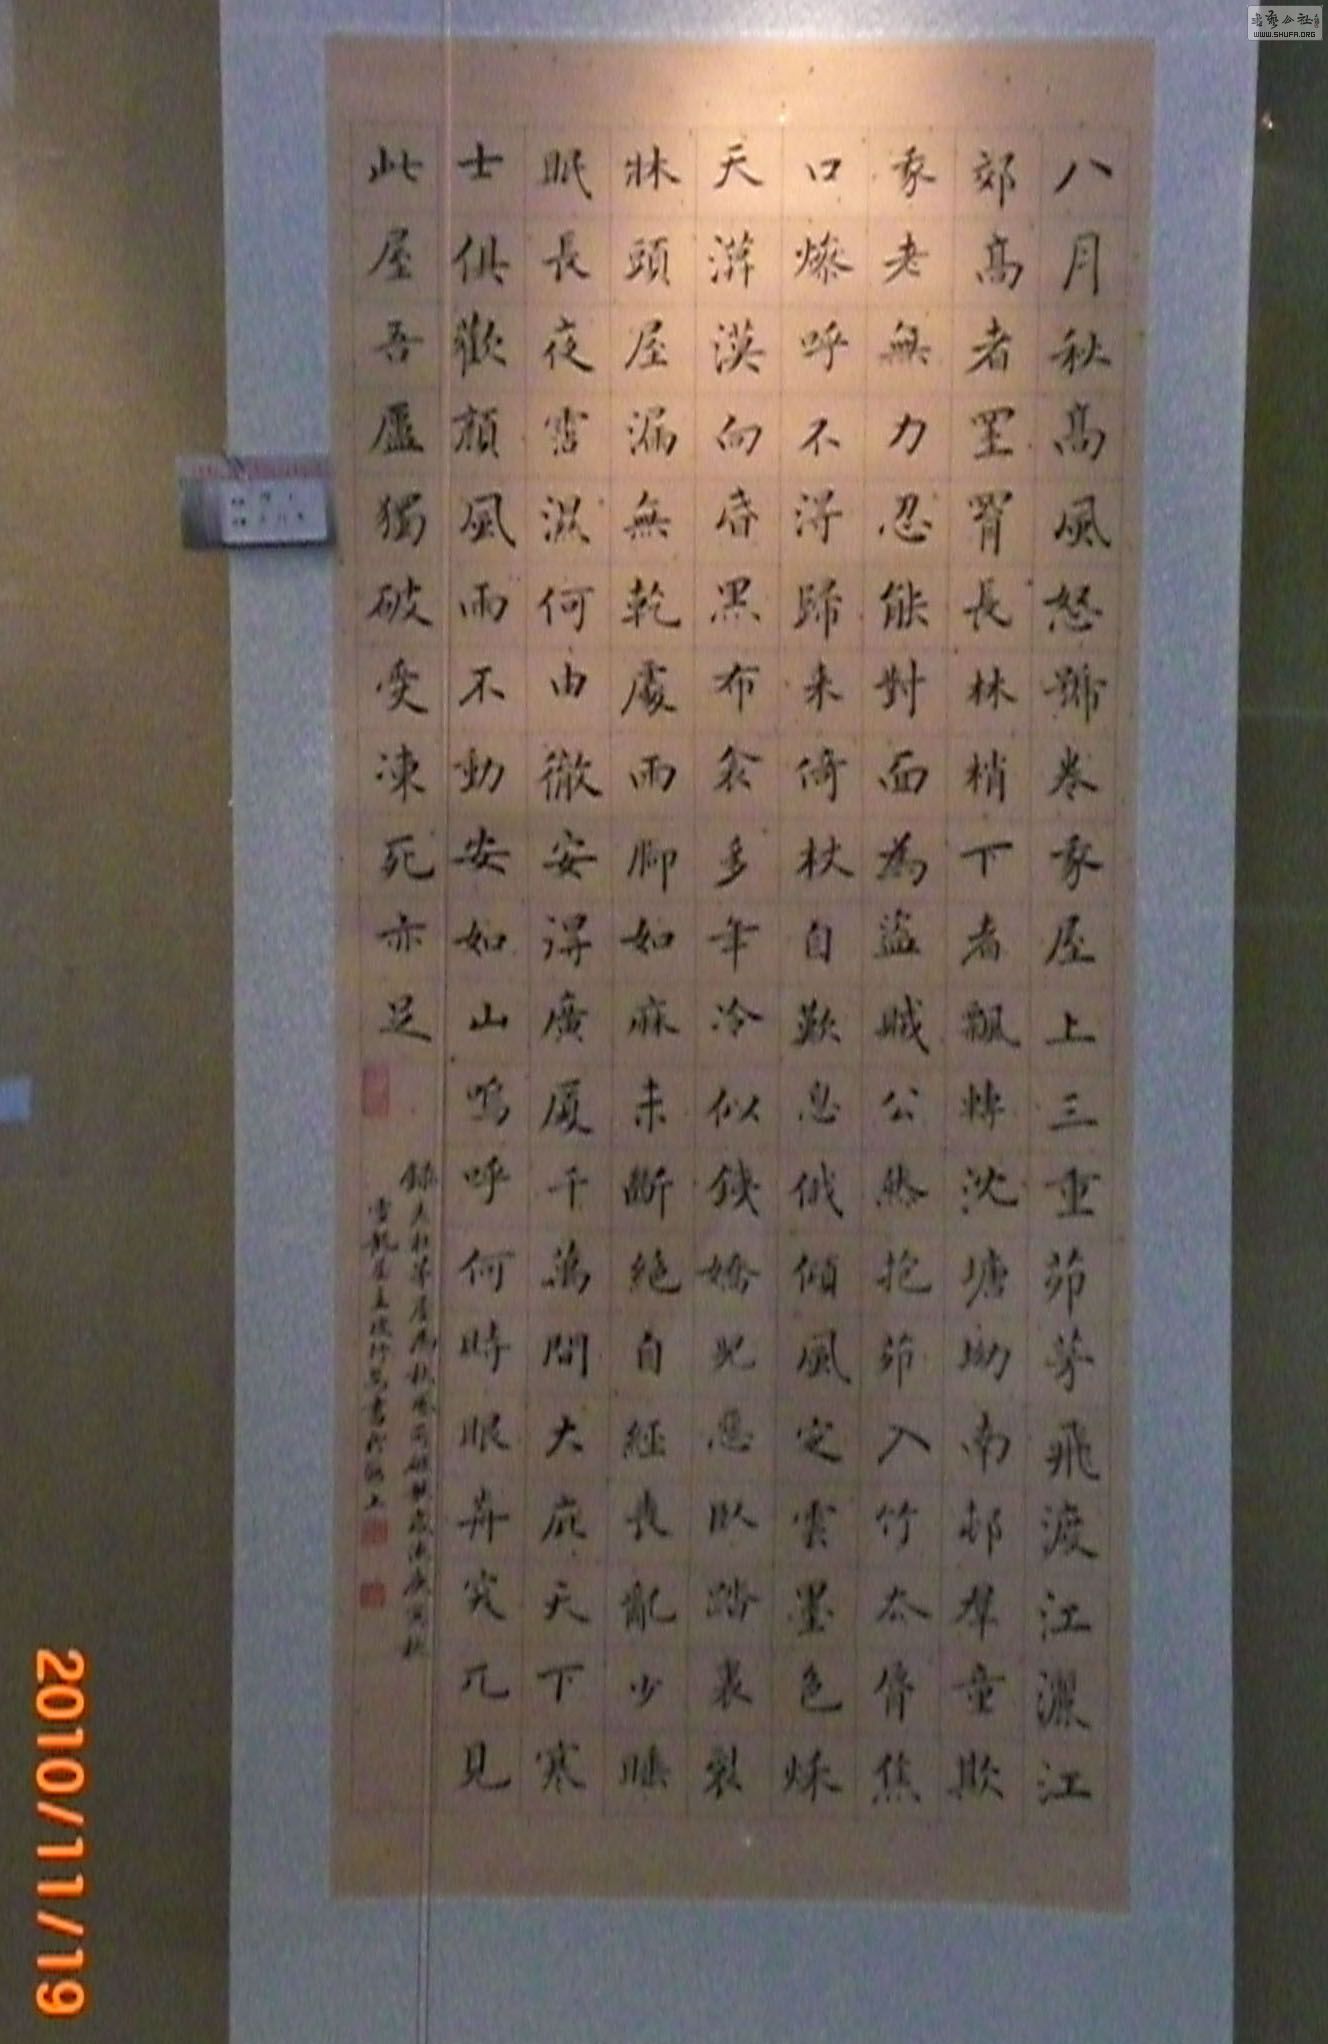 八月秋高風怒號卷我屋上三重茆茅飛渡江灑江
郊高者罣罥長林梢下者飄轉沈塘坳南邨羣童欺
我老無力忍能對面為盜賊公然抱茆入竹去脣焦
口燥呼不得歸來倚杖自歎息俄傾風定雲墨色秌
天漠向昏黑布衾多年冷似鐵嬌兒惡臥踏裏裂
牀頭屋漏無乾處雨腳如麻未斷絕自經喪亂少睡
眠長夜霑濕何由徹安得廣廈千萬間大庇天下寒
士俱歡顏風雨不動安如山嗚呼何時眼前突兀見
此屋吾廬獨破受凍死亦足
錄老杜茅屋為秋風所破歌歲次庚寅秋
屋主書於滬上
2010/11/19
WWW.SHUFA.ORG